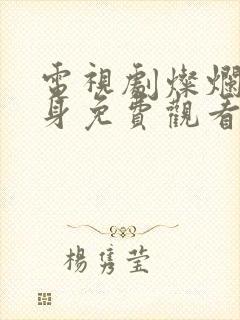 電視劇燦爛
身免費觀看
楊雋莹